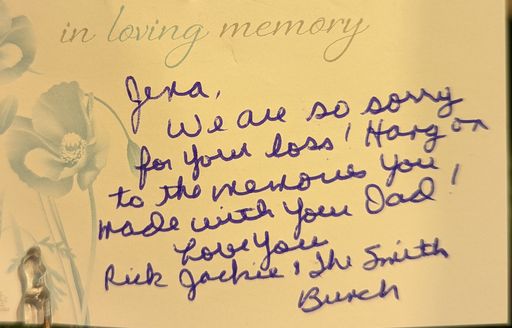 in loving memory
Jena,
We are so sorry
for your loss! Hang on
to the memories you
made with your Dad!
Love you
Rick Jackie & The Smith
Bunch